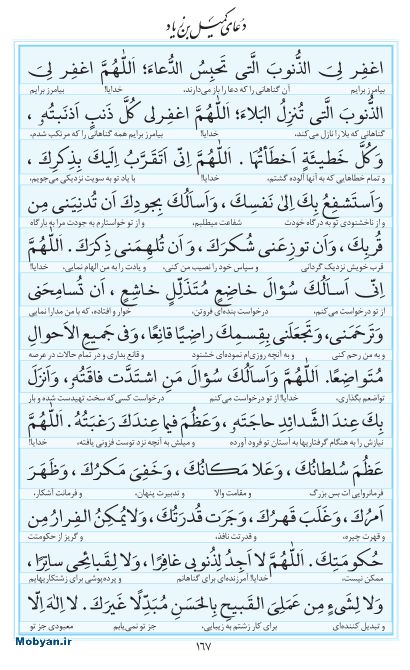 دعای کمیل بن زیاد
اغفِر لِیَ الذُّنوبَ الَّتی تَحبِسُ الدُّعاءَ؛ اَللّٰهُمَّ اغفِر لِیَ
بیامرز برایم آن گناهانی را که دعا را باز می‌دارند، خدایا! بیامرز برایم
الذُّنوبَ الَّتی تُنزِلُ البَلاءَ؛ اَللّٰهُمَّ اغفِرلی کُلَّ ذَنبٍ اَذنَبتُهُ،
گناهانی که بلا را نازل می‌کند، خدایا! بیامرز برایم همه گناهانی را که مرتکب شدم،
وَکُلَّ خَطیئَةٍ اَخطَأتُها. اَللّٰهُمَّ اِنّی اَتَقَرَّبُ اِلَیکَ بِذِکرِکَ،
و تمام خطاهایی که به آنها آلوده گشتم، خدایا! با یاد تو به سویت نزدیکی می‌جویم،
وَاَستَشفِعُ بِکَ اِلیٰ نَفسِکَ، وَاَسأَلُکَ بِجودِکَ اَن تُدنِیَنی مِن
و از ناخشنودی تو به درگاه خودت شفاعت میطلبم، و از تو خواستارم به جودت مرا به بارگاه
قُربِکَ، وَاَن توزِعَنی شُکرَکَ، وَ اَن تُلهِمَنی ذِکرَکَ. اَللّٰهُمَّ
قرب خویش نزدیک گردانی و سپاس خود را نصیب من کنی، و یادت را به من الهام نمایی، خدایا!
اِنّی اَسأَلُکَ سُؤالَ خاضِعٍ مُتَذَلِّلٍ خاشِعٍ، اَن تُسامِحَنی
از تو درخواست می‌کنم، درخواست بنده‌ای فروتن، خوار و افتاده، که با من مدارا نمایی
وَتَرحَمَنی، وَتَجعَلَنی بِقِسمِکَ راضِیًا قانِعًا، وَفی جَمیعِ الاَحوالِ
و به من رحم کنی و به آنچه روزی‌ام نموده‌ای خشنود و قانع بداری و در تمام حالات در عرصه
مُتَواضِعًا. اَللّٰهُمَّ وَاَسأَلُکَ سُؤالَ مَنِ اشتَدَّت فاقَتُهُ، وَاَنزَلَ
تواضعم بگذاری، خدایا! از تو درخواست می‌کنم درخواست کسی‌که سخت تهیدست شده و بار
بِکَ عِندَ الشَّدائِدِ حاجَتَهُ، وَعَظُمَ فیما عِندَکَ رَغبَتُهُ. اَللّٰهُمَّ
نیازش را به هنگام گرفتاریها به آستان تو فرود آورده و میلش به آنچه نزد توست فزونی یافته، خدایا!
عَظُمَ سُلطانُکَ، وَعَلا مَکانُکَ، وَخَفِیَ مَکرُکَ، وَظَهَرَ
فرمانروایی ات بس بزرگ و مقامت والا و تدبیرت پنهان، و فرمانت آشکار،
اَمرُکَ، وَغَلَبَ قَهرُکَ، وَجَرَت قُدرَتُکَ، وَلایُمکِنُ الفِرارُ مِن
و قهرت چیره، و قدرتت نافذ، و گریز از حکومتت
حُکومَتِکَ. اَللّٰهُمَّ لا اَجِدُ لِذُنوبی غافِرًا، وَلا لِقَبائِحی ساتِرًا،
ممکن نیست، خدایا! آمرزنده‌ای برای گناهانم و پرده‌پوشی برای زشتکاریهایم
وَلا لِشَیءٍ مِن عَمَلِیَ القَبیحِ بِالحَسَنِ مُبَدِّلًا غَیرَکَ. لا اِلٰهَ اِلّا
و تبدیل کننده‌ای برای کار زشتم به زیبایی، جز تو نمی‌یابم معبودی جز تو
۱۶۷
Mobyan.ir